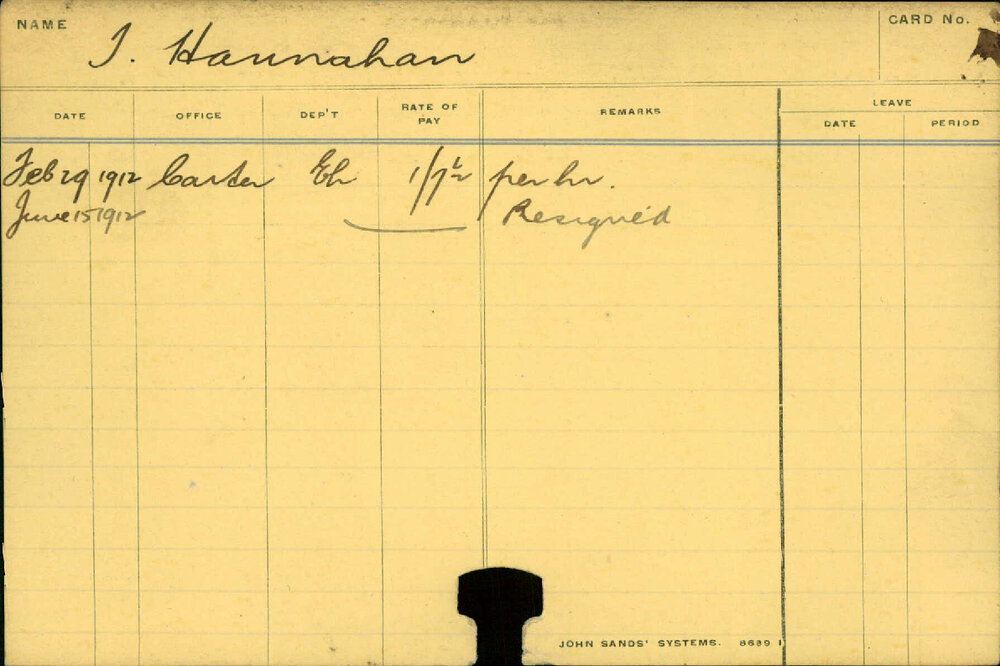 NAME T. Hannahan CARD No.
LEAVE
DATE OFFICE DEP'T RATE OF PAY REMARKS DATE PERIOD
Feb 29 1912 Carter Eh 1/7½ per hr.
June 15 1912 Resigned
JOHN SANDS' SYSTEMS. 8689